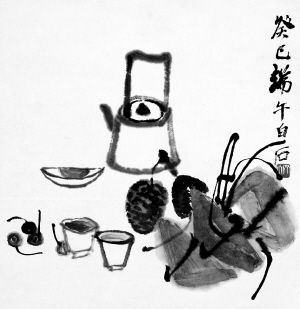 癸巳端午白石